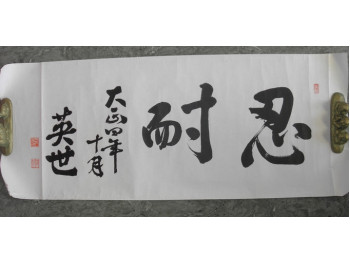 忍耐
大正四年
十月
英世